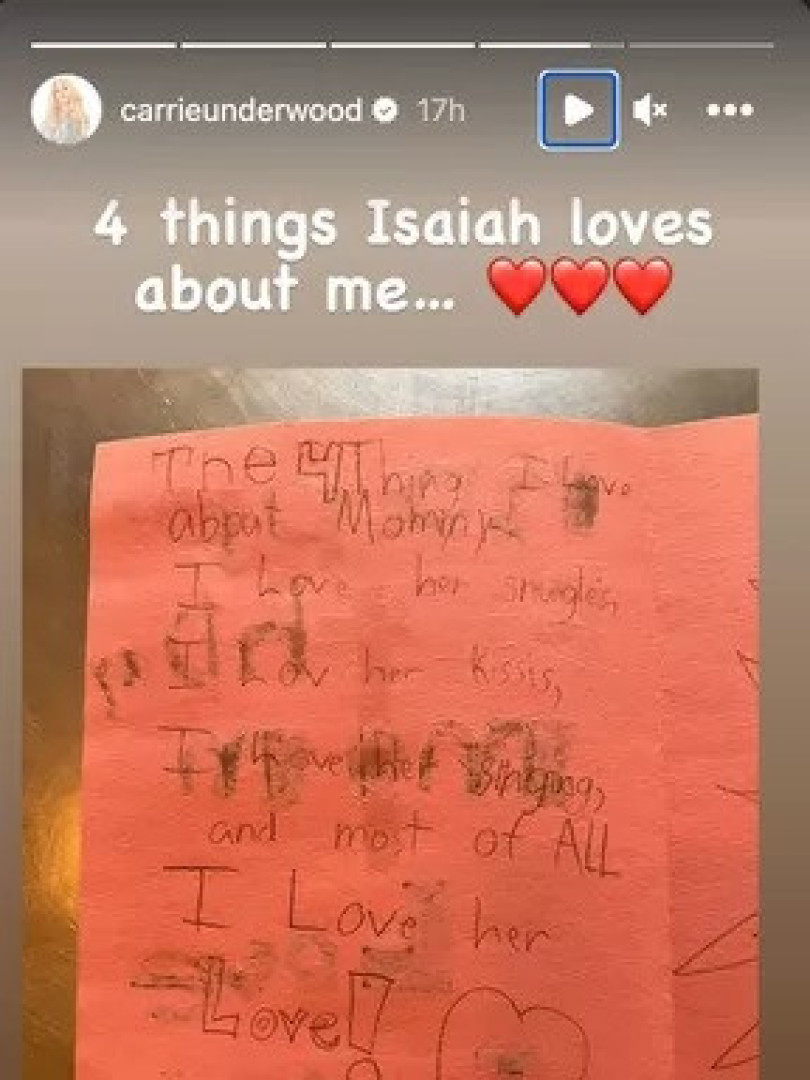 carrieunderwood 17h
4 things Isaiah loves
about me... ❤️❤️❤️
The 4 Thing I Love
about Mommy!
I Love her snugles,
I Lov her Kissis,
I Love her singing,
and most of ALL
I Love her
Love!